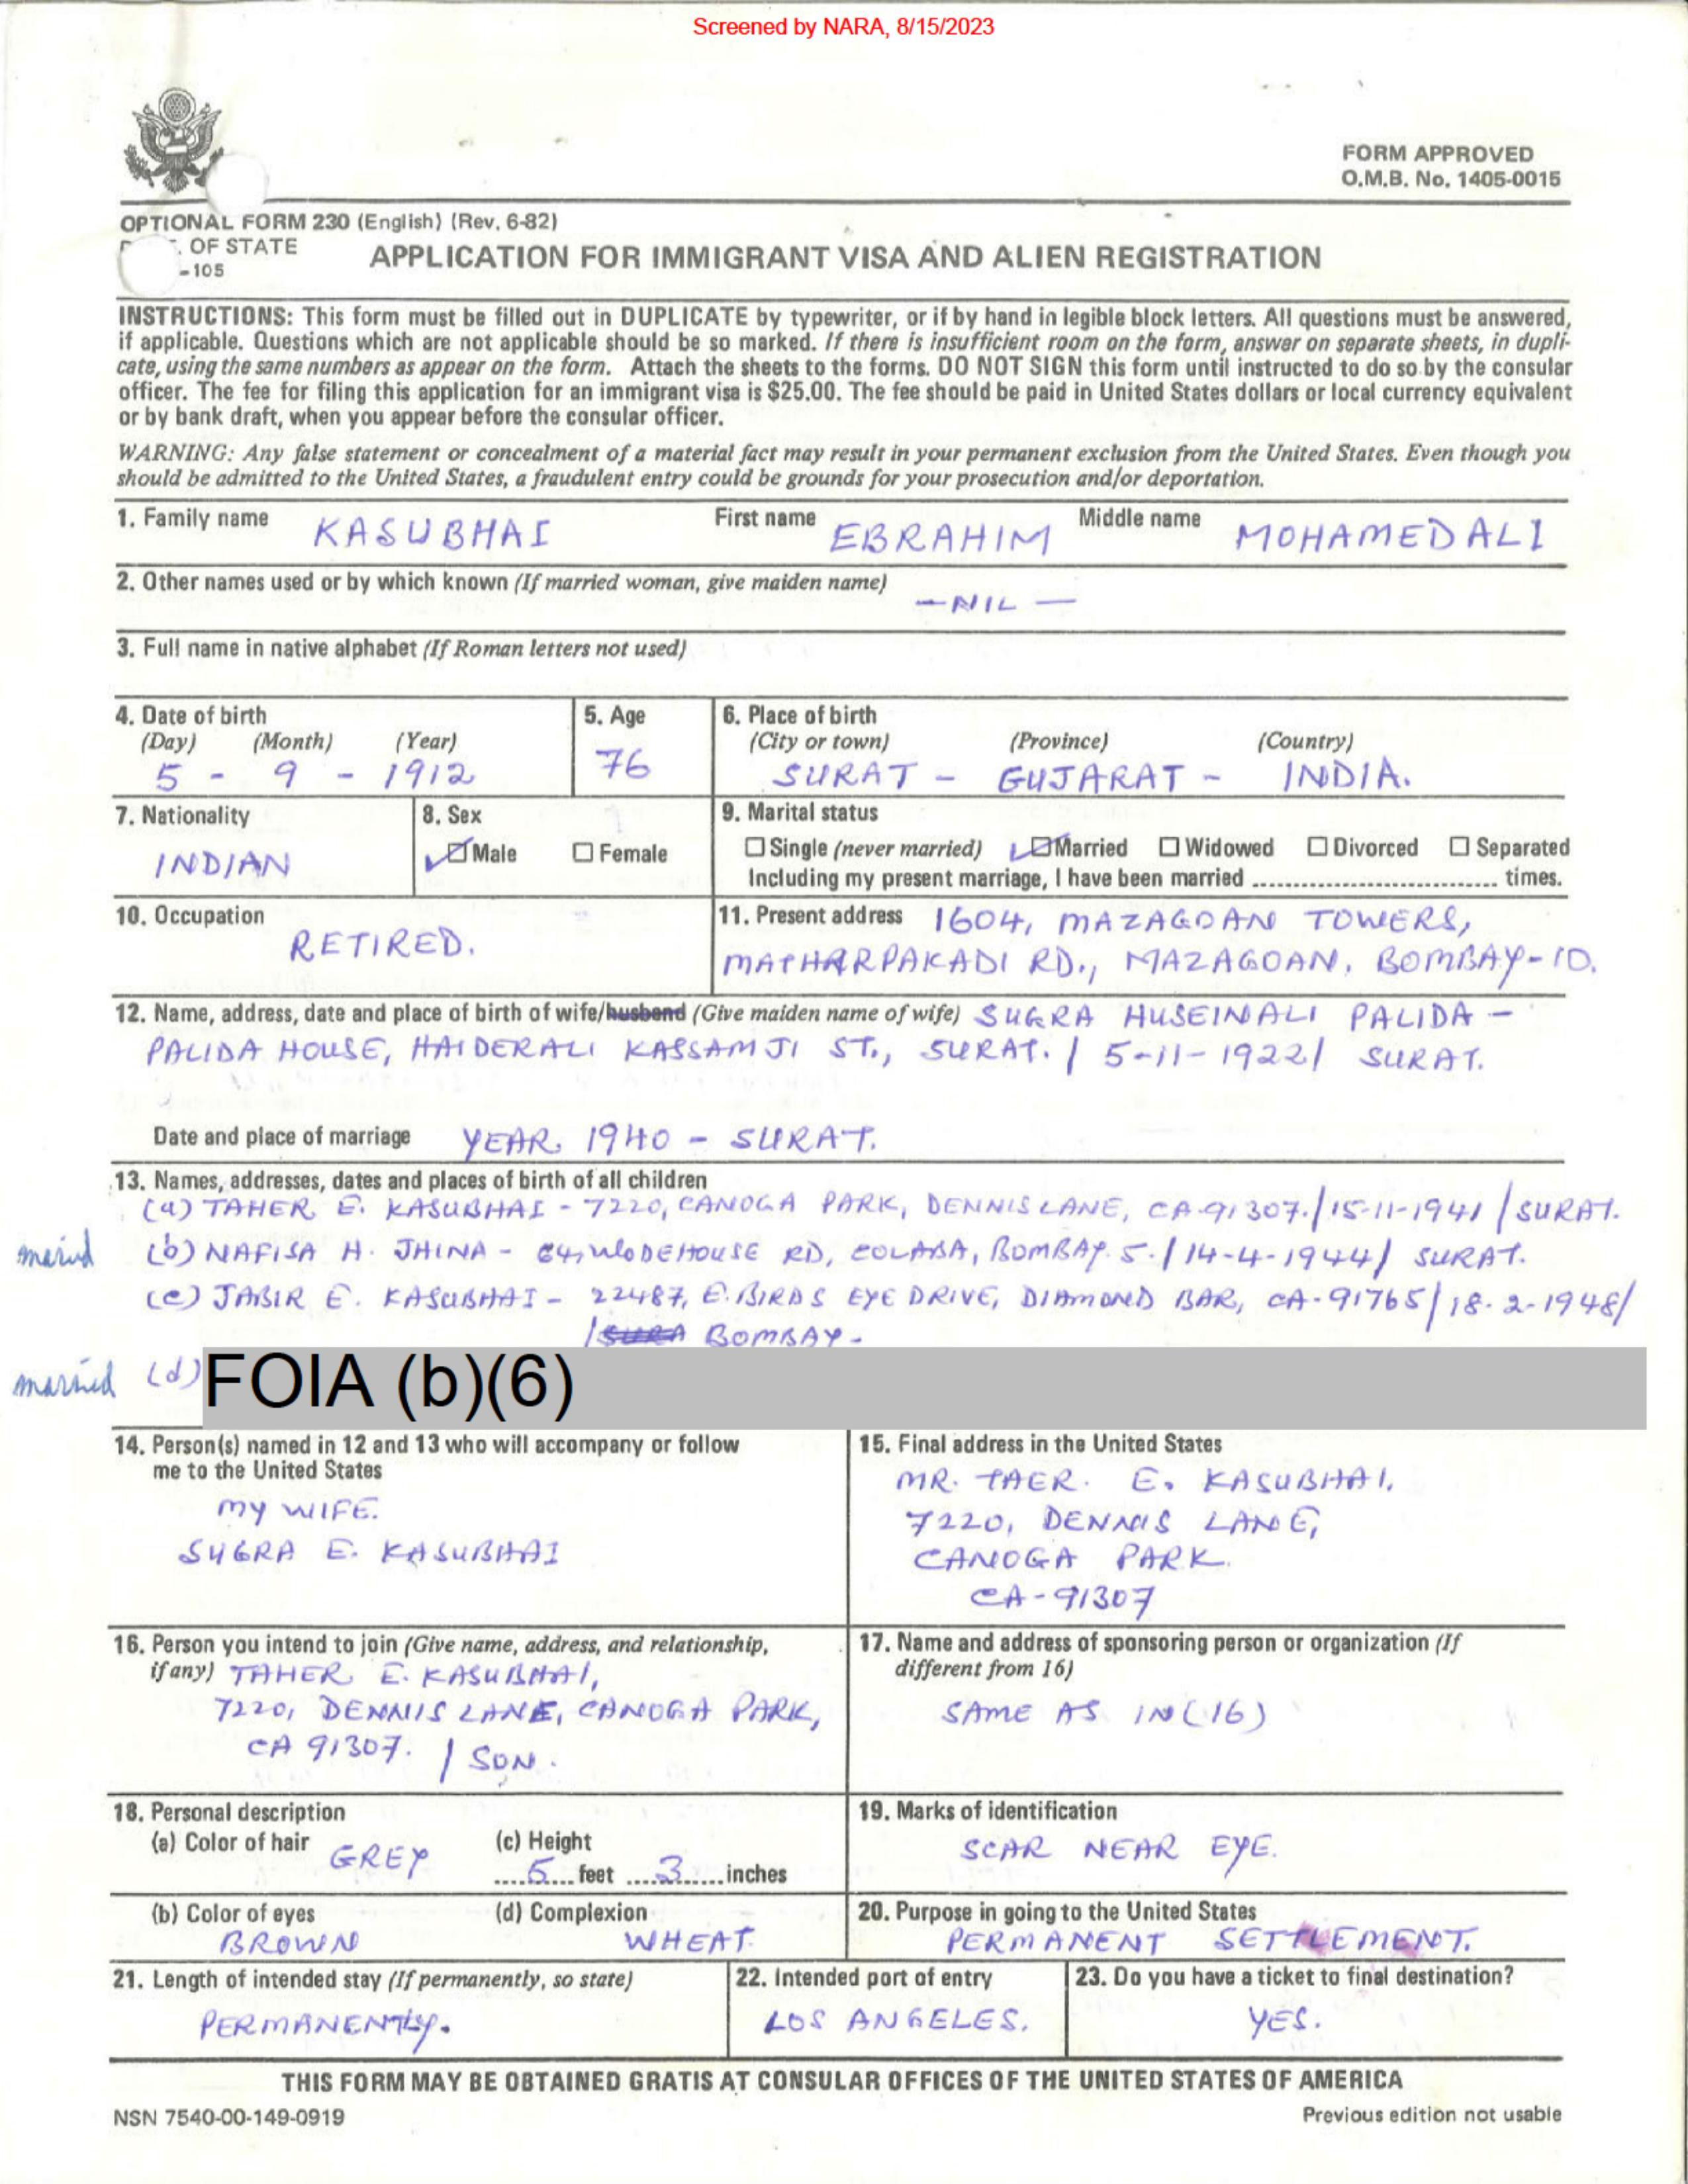 Screened by NARA, 8/15/2023
FORM APPROVED
O.M.B. No. 1405-0015
OPTIONAL FORM 230 (English) (Rev. 6-82)
OF STATE
-105
APPLICATION FOR IMMIGRANT VISA AND ALIEN REGISTRATION
INSTRUCTIONS: This form must be filled out in DUPLICATE by typewriter, or if by hand in legible block letters. All questions must be answered,
if applicable. Questions which are not applicable should be so marked. If there is insufficient room on the form, answer on separate sheets, in dupli-
cate, using the same numbers as appear on the form. Attach the sheets to the forms. DO NOT SIGN this form until instructed to do so by the consular
officer. The fee for filing this application for an immigrant visa is $25.00. The fee should be paid in United States dollars or local currency equivalent
or by bank draft, when you appear before the consular officer.
WARNING: Any false statement or concealment of a material fact may result in your permanent exclusion from the United States. Even though you
should be admitted to the United States, a fraudulent entry could be grounds for your prosecution and/or deportation.
1. Family name KASUBHAI First name EBRAHIM Middle name MOHAMEDALI
2. Other names used or by which known (If married woman, give maiden name) —NIL—
3. Full name in native alphabet (If Roman letters not used)
4. Date of birth 5. Age 6. Place of birth
(Day) (Month) (Year) (City or town) (Province) (Country)
5 - 9 - 1912 76 SURAT - GUJARAT - INDIA.
7. Nationality 8. Sex 9. Marital status
INDIAN ☑ Male ☐ Female ☐ Single (never married) ☑ Married ☐ Widowed ☐ Divorced ☐ Separated
Including my present marriage, I have been married .............................. times.
10. Occupation RETIRED. 11. Present address 1604, MAZAGOAN TOWERS,
MATHARPAKADI RD., MAZAGOAN, BOMBAY-10.
12. Name, address, date and place of birth of wife/husband (Give maiden name of wife) SUGRA HUSEINALI PALIDA -
PALIDA HOUSE, HAIDERALI KASSAMJI ST., SURAT. / 5-11-1922 / SURAT.
Date and place of marriage YEAR 1940 - SURAT.
13. Names, addresses, dates and places of birth of all children
(a) TAHER E. KASUBHAI - 7220, CANOGA PARK, DENNIS LANE, CA-91307. / 15-11-1941 / SURAT.
married (b) NAFISA H. JHINA - 64, WODEHOUSE RD, COLABA, BOMBAY. 5. / 14-4-1944 / SURAT.
(c) JABIR E. KASUBHAI - 22487, E. BIRDS EYE DRIVE, DIAMOND BAR, CA-91765 / 18-2-1948 /
/ SURA BOMBAY -
married (d) FOIA (b)(6)
14. Person(s) named in 12 and 13 who will accompany or follow
me to the United States
MY WIFE.
SUGRA E. KASUBHAI
15. Final address in the United States
MR. TAER. E. KASUBHAI,
7220, DENNIS LANE,
CANOGA PARK.
CA-91307
16. Person you intend to join (Give name, address, and relationship,
if any) TAHER E. KASUBHAI,
7220, DENNIS LANE, CANOGA PARK,
CA 91307. / SON.
17. Name and address of sponsoring person or organization (If
different from 16)
SAME AS IN (16)
18. Personal description
(a) Color of hair GREY (c) Height
5 feet 3 inches
19. Marks of identification
SCAR NEAR EYE.
(b) Color of eyes (d) Complexion
BROWN WHEAT
20. Purpose in going to the United States
PERMANENT SETTLEMENT.
21. Length of intended stay (If permanently, so state)
PERMANENTLY.
22. Intended port of entry
LOS ANGELES.
23. Do you have a ticket to final destination?
YES.
THIS FORM MAY BE OBTAINED GRATIS AT CONSULAR OFFICES OF THE UNITED STATES OF AMERICA
NSN 7540-00-149-0919 Previous edition not usable